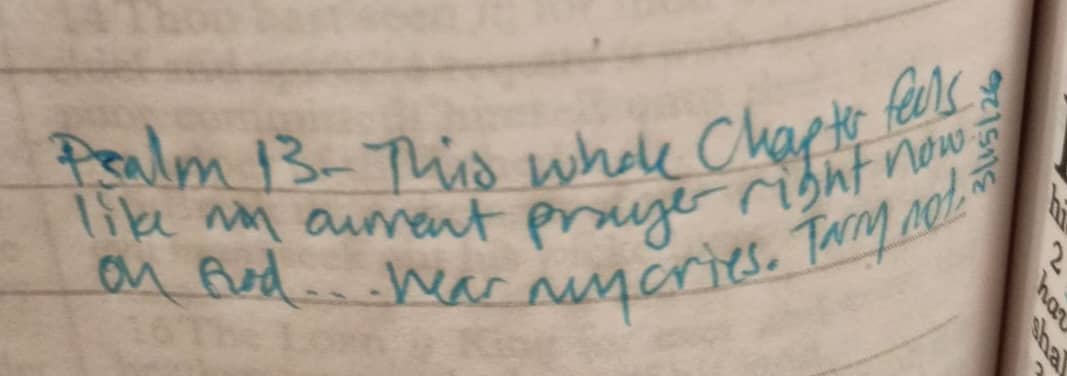 Psalm 13- This whole Chapter feels
like my current prayer right now
oh God.... hear my cries. Tarry not.
3/15/26
hi
2
hav
shal